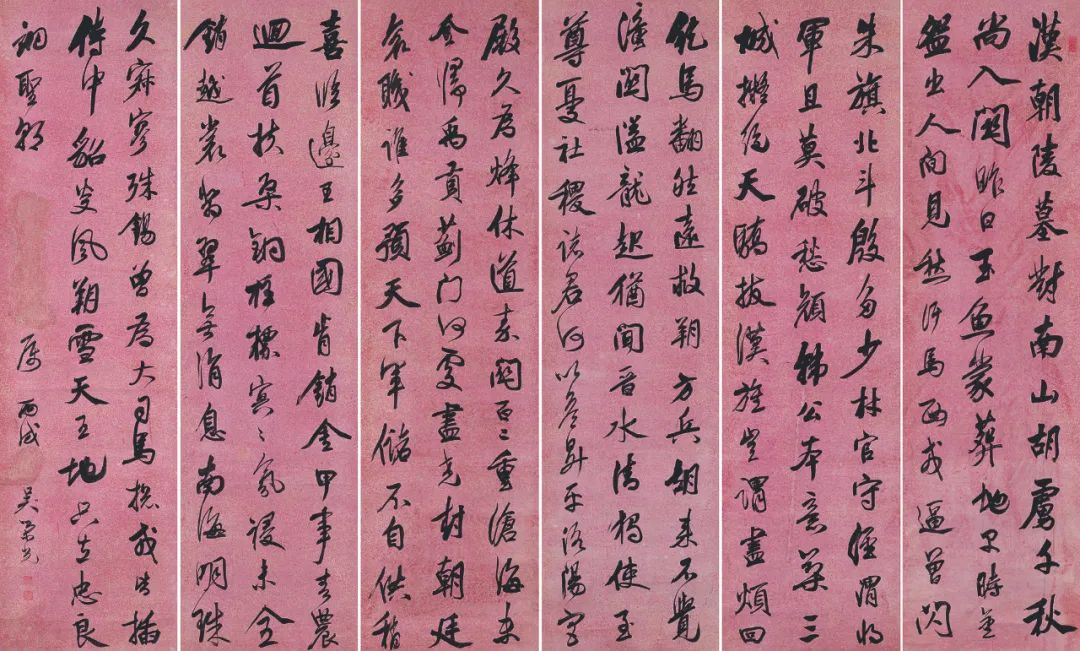 漢朝陵墓對南山胡虜千秋
尚入關昨日玉魚蒙葬地早時金
盌出人間見愁汗馬西戎逼曾閃
朱旗北斗殷多少材官守涇渭將
軍且莫破愁顏韓公本意築三
城擬絕天驕拔漢旌豈謂盡煩回
紇馬翻然遠救朔方兵胡來不覺
潼關溢龍起猶聞晉水清獨使至
尊憂社稷諸君何以答昇平洛陽宮
殿久為烽休道秦關百二重滄海未
全歸禹貢薊門何處盡堯封朝廷
袞職誰多預天下軍儲不自供稍
喜臨邊王相國肯銷金甲事春農
迴首扶桑銅柱標冥〻氛祲未全
銷越裳翡翠無消息南海明珠
久寂寥殊錫曾為大司馬總戎皆插
侍中貂炎風朔雪天王地只在忠良
翊聖朝
屬 丙戌 吳榮光